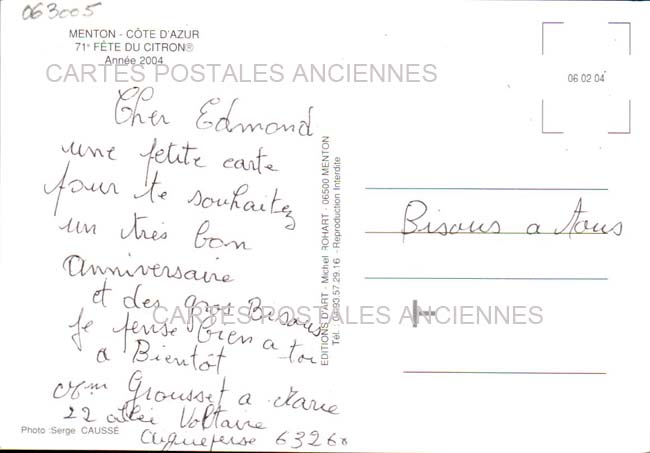 063005
MENTON - CÔTE D'AZUR
71e FÊTE DU CITRON®
Année 2004
CARTES POSTALES ANCIENNES
06 02 04
Cher Edmond
une petite carte
pour te souhaitez
un très bon
anniversaire
et des gros Bisous
je pense bien a toi
a Bientôt
Grousset a Marie
22 allée Voltaire
Aigueperse 63260
Photo :Serge CAUSSÉ
EDITIONS D'ART - Michel ROHART - 06500 MENTON
Tél. 04.93.57.29.16 - Reproduction Interdite
Bisous a tous
CARTES POSTALES ANCIENNES